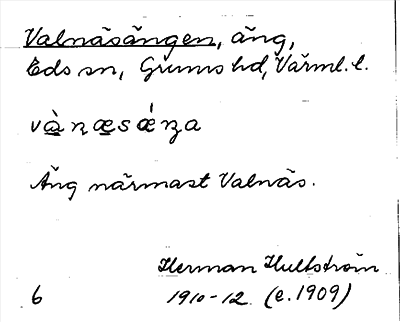 Valnäsängen, äng,
Eds sn, Grums hd, Värml. l.
Äng närmast Valnäs.
Herman Hultström
6 1910-12 (e. 1909)